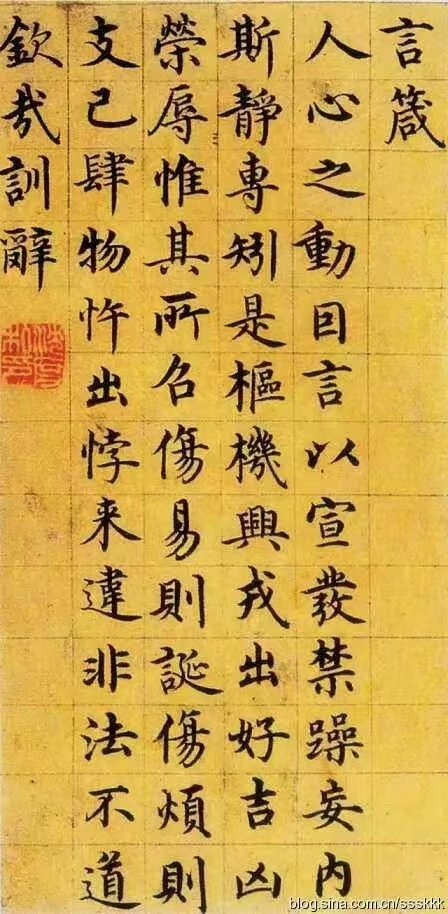 言箴
人心之動囙言以宣發禁躁妄内
斯靜專矧是樞機興戎出好吉凶
榮辱惟其所召傷易則誕傷煩則
支己肆物忤出悖来違非法不道
欽哉訓辭
blog.sina.com.cn/ssskkk